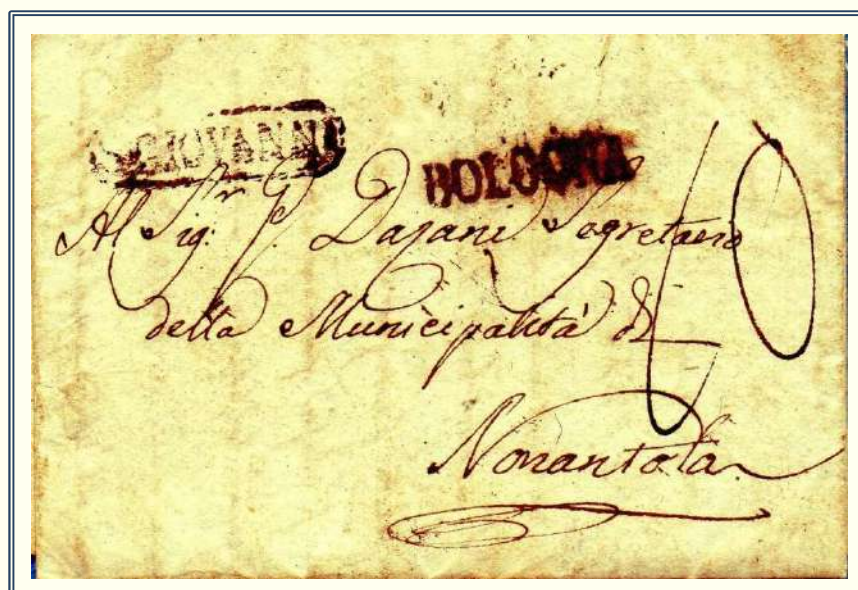 S. GIOVANNI
BOLOGNA
Al Sig.r P. Dajani Segretario
della Municipalità di
Nonantola
10